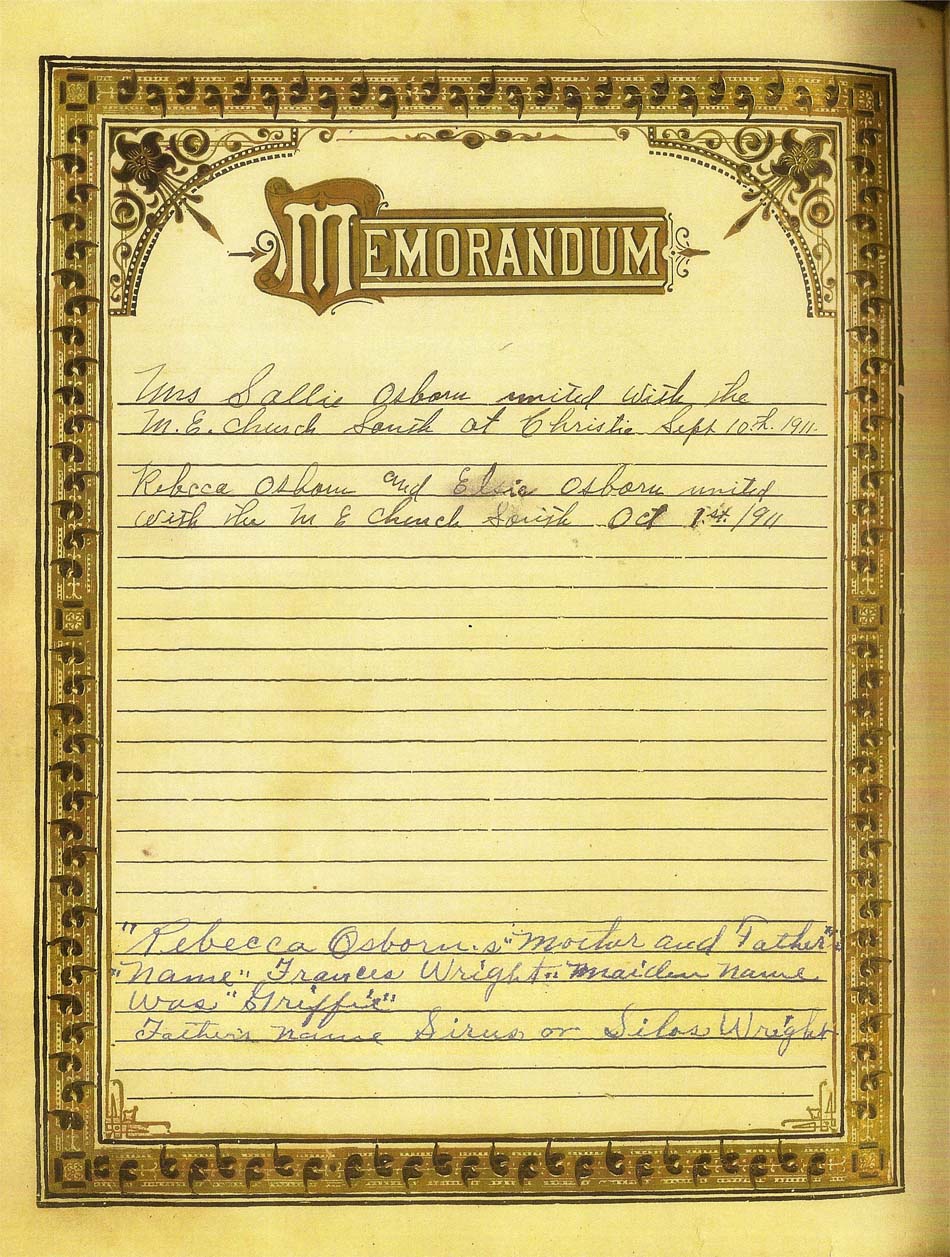 MEMORANDUM
Mrs Sallie Osborn united with the
M.E. Church South at Christie Sept 10th. 1911.
Rebecca Osborn and Elsie Osborn united
with the M E Church South Oct 1st. 1911
"Rebecca Osborn.s" Mother and Father"s
"Name" Frances Wright" maiden name
was "Griffie"
Father's name Sirus or Silos Wright